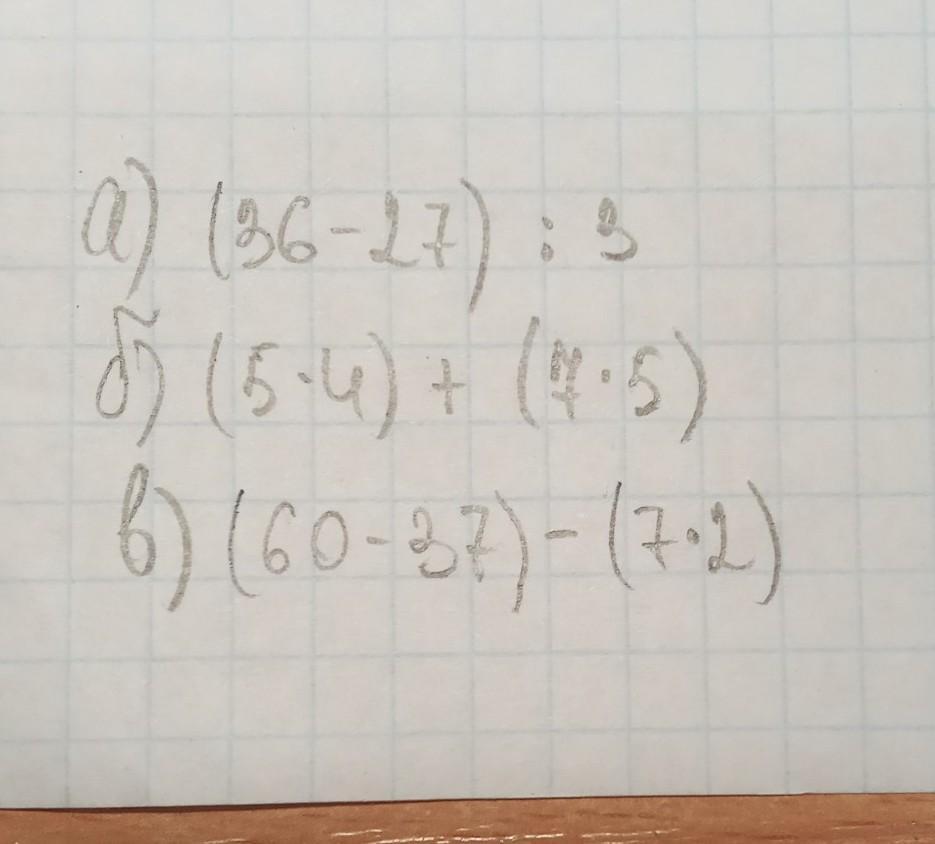 а) (36-27) : 3
б) (5·4) + (7·5)
в) (60-37) - (7·2)